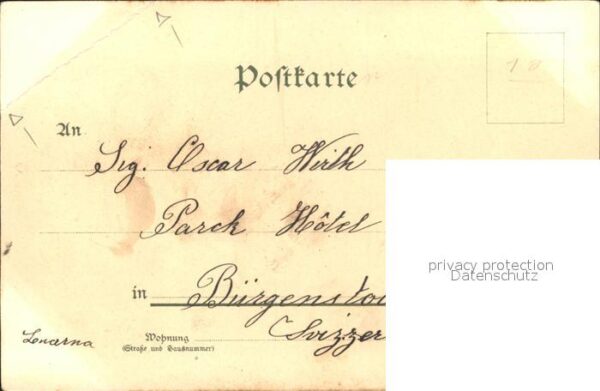 Postkarte
18
An
Sig. Oscar Wirth
Parck Hôtel
in Bürgensto
Svizzer
Lucerna
Wohnung
(Straße und Hausnummer)
privacy protection
Datenschutz